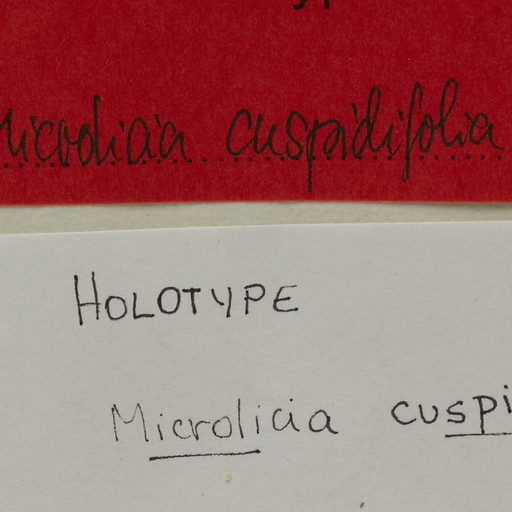 Microlicia cuspidifolia
HOLOTYPE
Microlicia cuspi